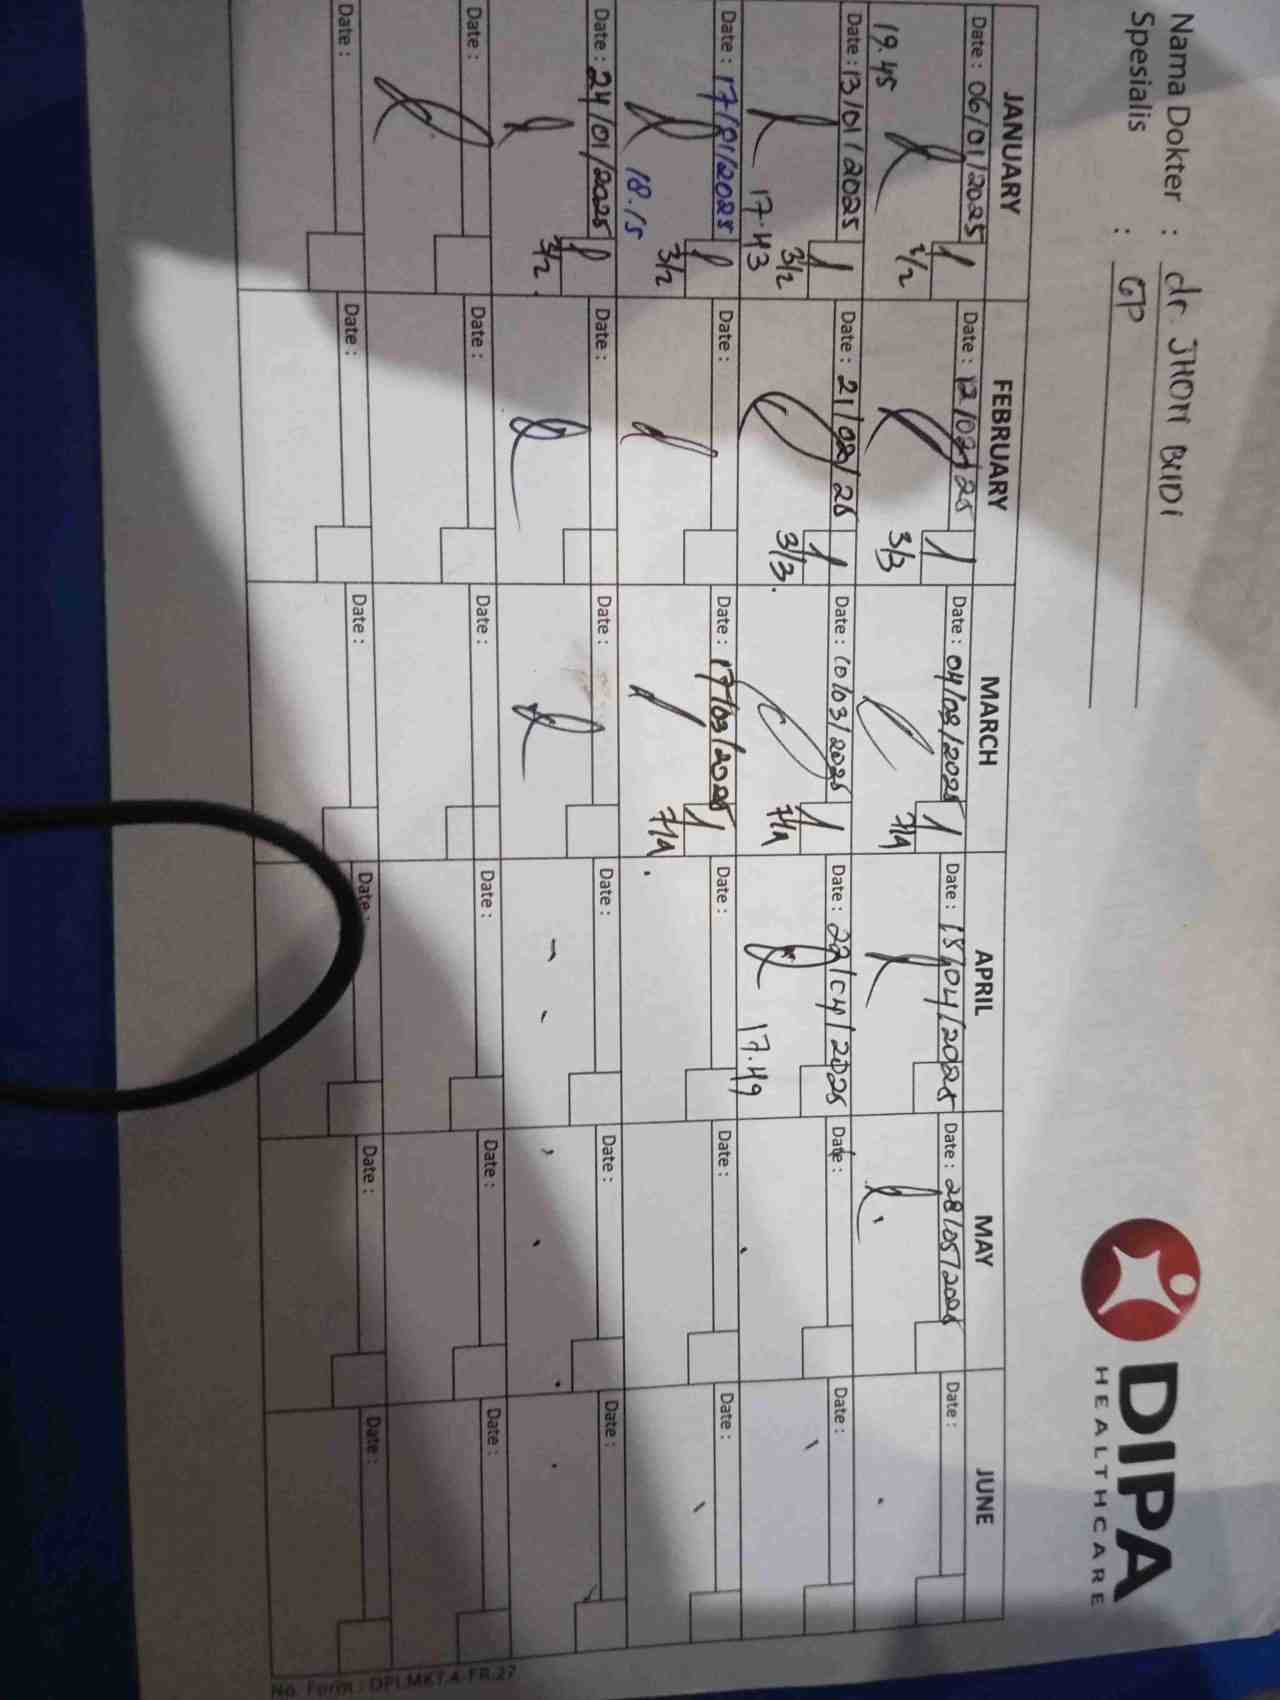 Nama Dokter : dr. JHON BUDI
Spesialis : GP
DIPA
HEALTHCARE
JANUARY FEBRUARY MARCH APRIL MAY JUNE
Date : 06/01/2025 Date : 12/02/25 Date : 04/03/2025 Date : 15/04/2025 Date : 28/05/2025 Date :
19.45 3/3 7/4
Date : 13/01/2025 Date : 21/02/25 Date : 10/03/2025 Date : 22/04/2025 Date : Date :
17.43 3/2 3/3. 7/4 17.49
Date : 17/01/2025 Date : Date : 17/03/2025 Date : Date : Date :
18.15 3/2 7/4
Date : 24/01/2025 Date : Date : Date : Date : Date :
3/2.
Date : Date : Date : Date : Date : Date :
Date : Date : Date : Date : Date : Date :
No. Form : DPI.MKT.4-FR.27